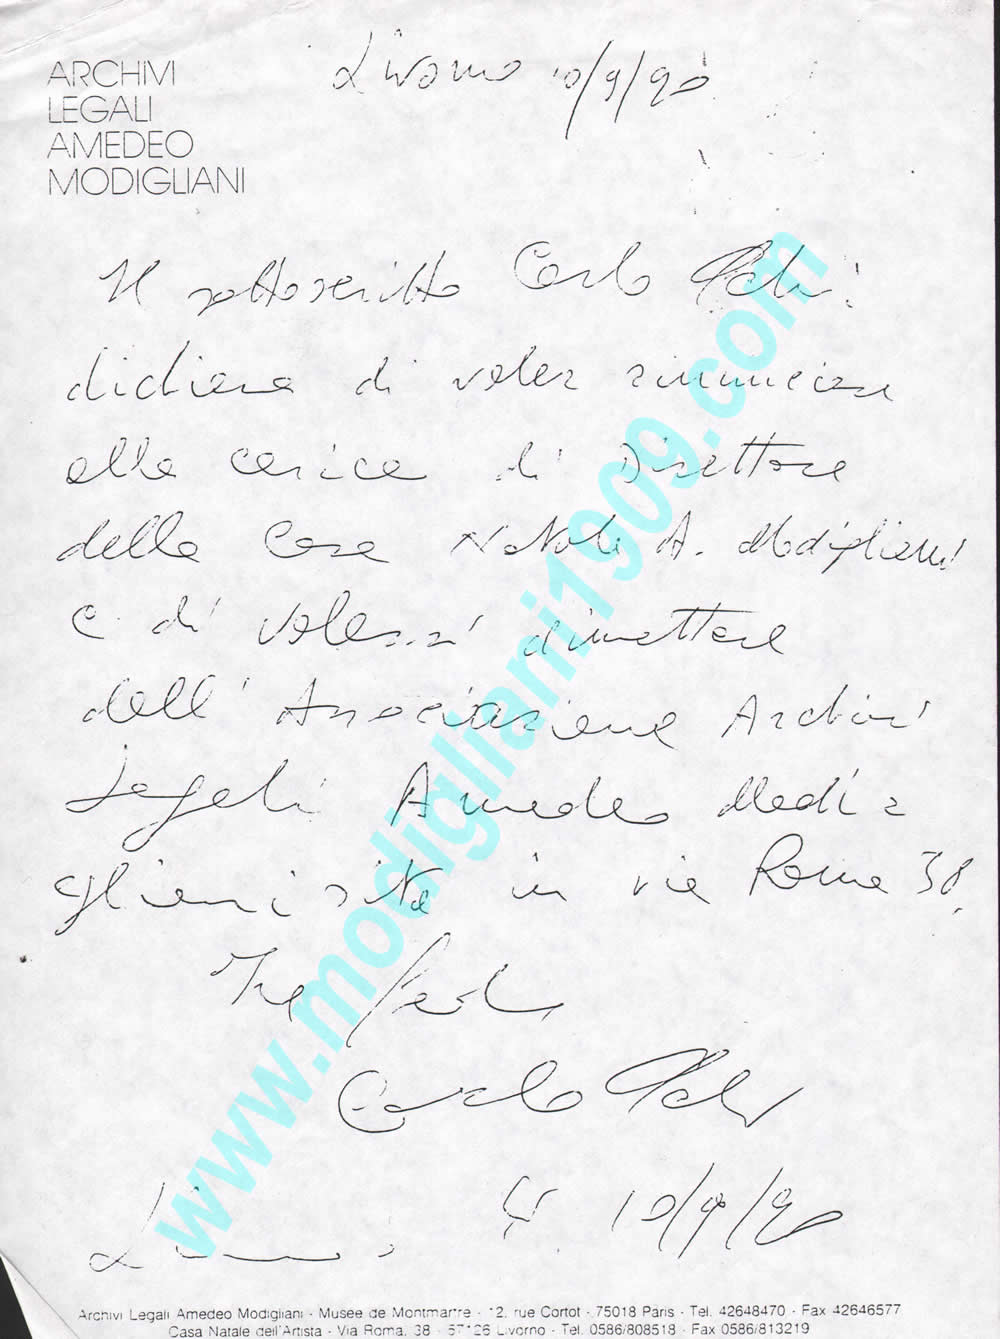 ARCHIVI
LEGALI
AMEDEO
MODIGLIANI
Livorno 10/9/90
Il sottoscritto Carlo
dichiara di voler rinunciare
alla carica di Direttore
della Casa Natale A. Modigliani
e di volersi dimettere
dell' Associazione Archivi
Legali Amedeo Modi
gliani sita in via Roma 38.
In fede
Carlo
Livorno. 10/9/90
www.modigliani1909.com
Archivi Legali Amedeo Modigliani - Musee de Montmartre - 12, rue Cortot - 75018 Paris - Tel. 42648470 - Fax 42646577
Casa Natale dell'Artista - Via Roma, 38 - 57126 Livorno - Tel. 0586/808518 - Fax 0586/813219